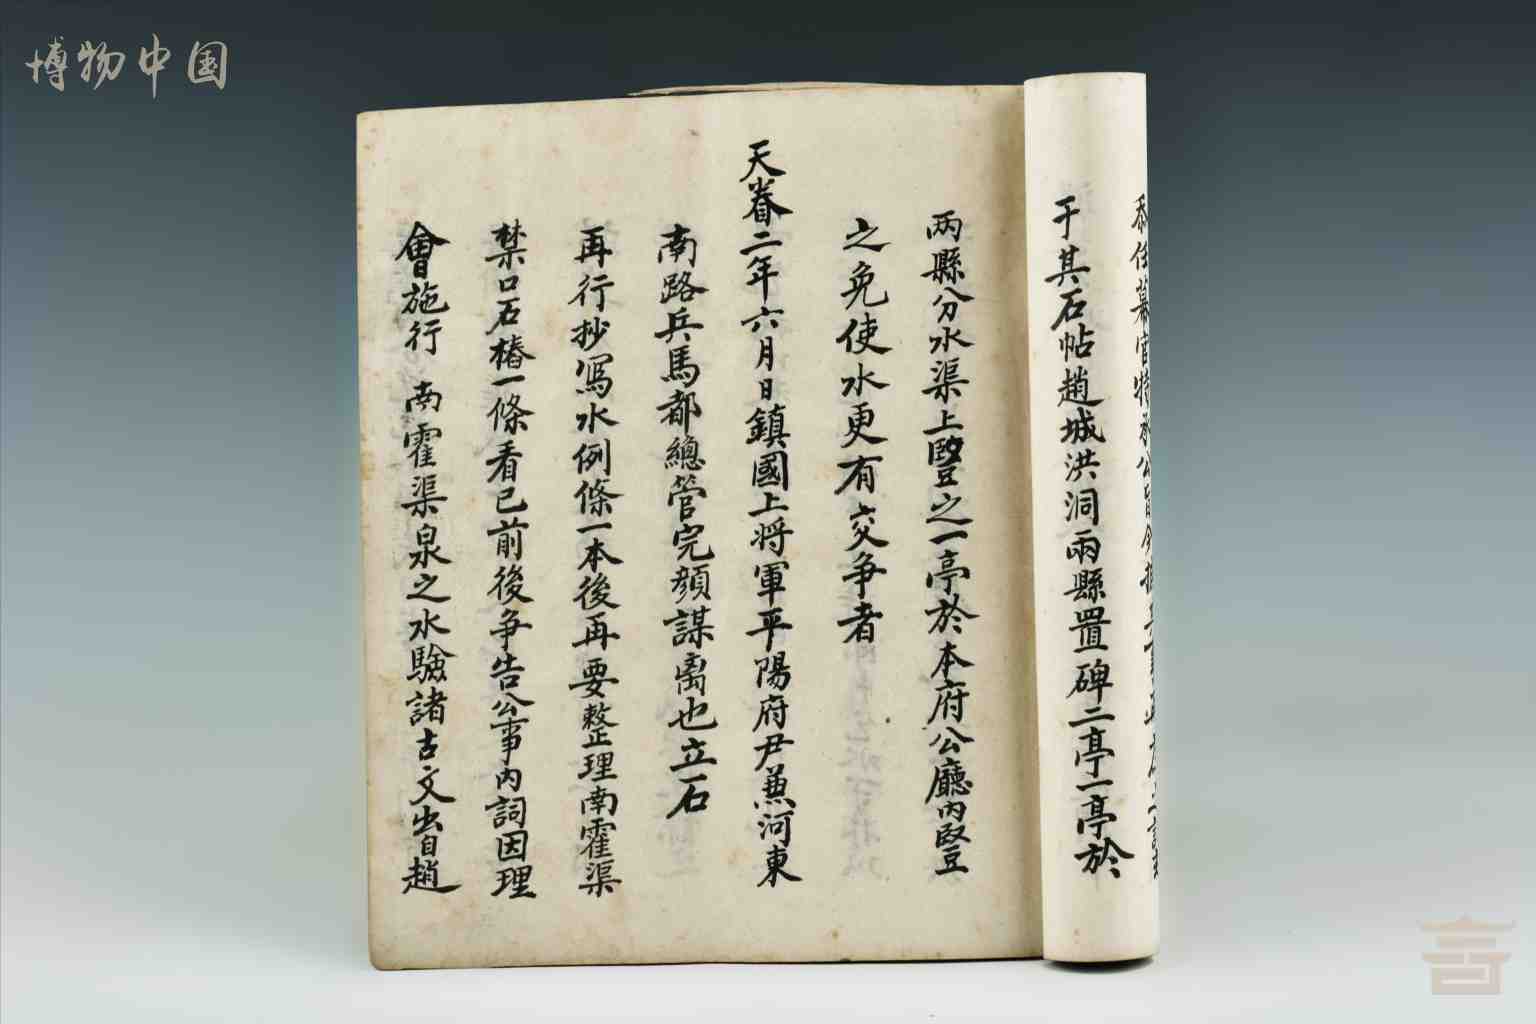 博物中国
于其石帖趙城洪洞兩縣置碑二亭一亭於
两縣分水渠上竪之一亭於本府公廳内竪
之免使水更有交争者
天眷二年六月日鎮國上将軍平陽府尹兼河東
南路兵馬都總管完顔謀离也立石
再行抄寫水例條一本後再要整理南霍渠
禁口石樁一條看已前後争告公事内詞因理
會施行 南霍渠泉之水驗諸古文出自趙